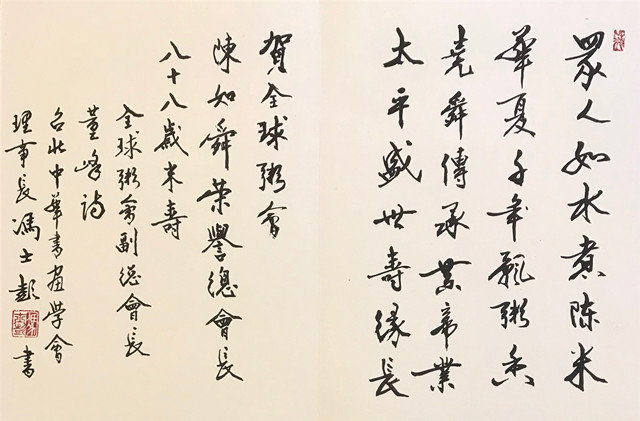 眾人如水煮陈米
華夏千年飄粥香
堯舜傳承帝業
太平盛世壽緣長
賀全球粥會
陳如舜榮譽總會長
八十八歲米壽
全球粥會副總會長
董峰詩
台北中華書畫學會
理事長馮士彭書